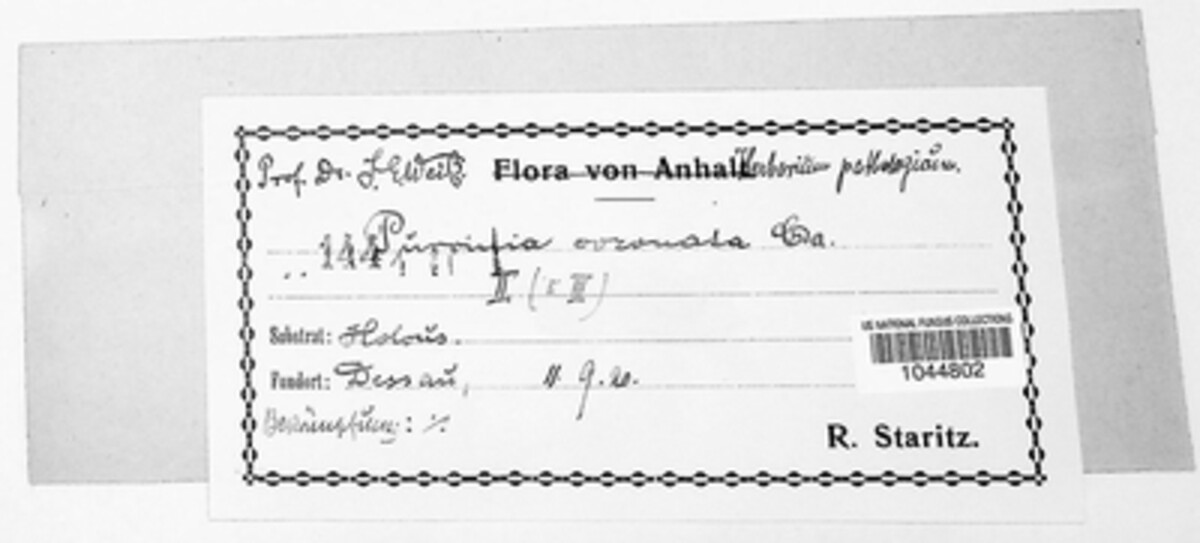 Prof. Dr. J. E. Weitz. Flora von Anhalt Herbarium pathologicum.
144 Puccinia coronata Ca.
II ( III)
Substrat: Holcus.
Fundort: Dessau, 9. 20.
Bekämpfung: ./.
US NATIONAL FUNGUS COLLECTIONS
1044802
R. Staritz.